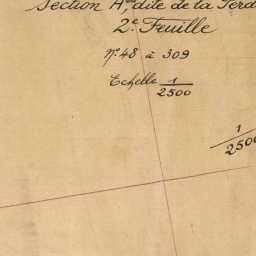 Section A, dite de la
2e Feuille
No. 48 à 309
Echelle 1/2500
1/2500